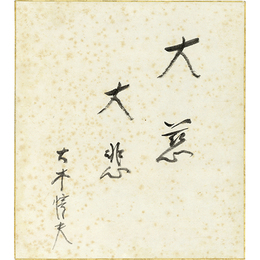 大慈
大悲
大木惇夫